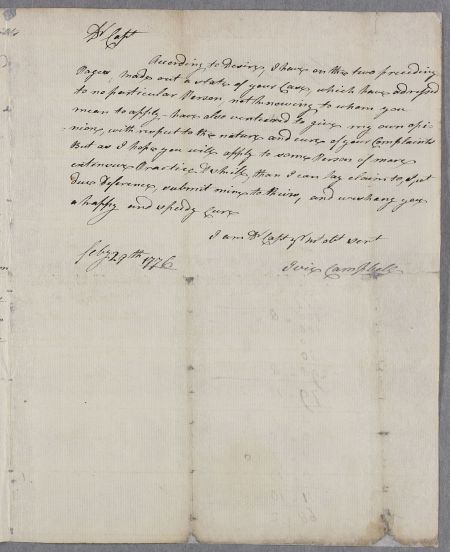 Dr Capt
According to Desire, I have on the two preceding
Pages, made out a state of your Case, which have adressed
to no particular Person not knowing to whom you
mean to apply - have also ventured to give my own opi-
nion, with respect to the nature and cure of your Complaints
But as I hope you will apply to some Person of more
extensive Practice & whilk, than I can lay claim to, I, wt
due deference, submit mine to theirs, and wishing you
a happy and speedy Cure
I am Dr Capt yr mo obt sert
Campbell
feby 29th 1776